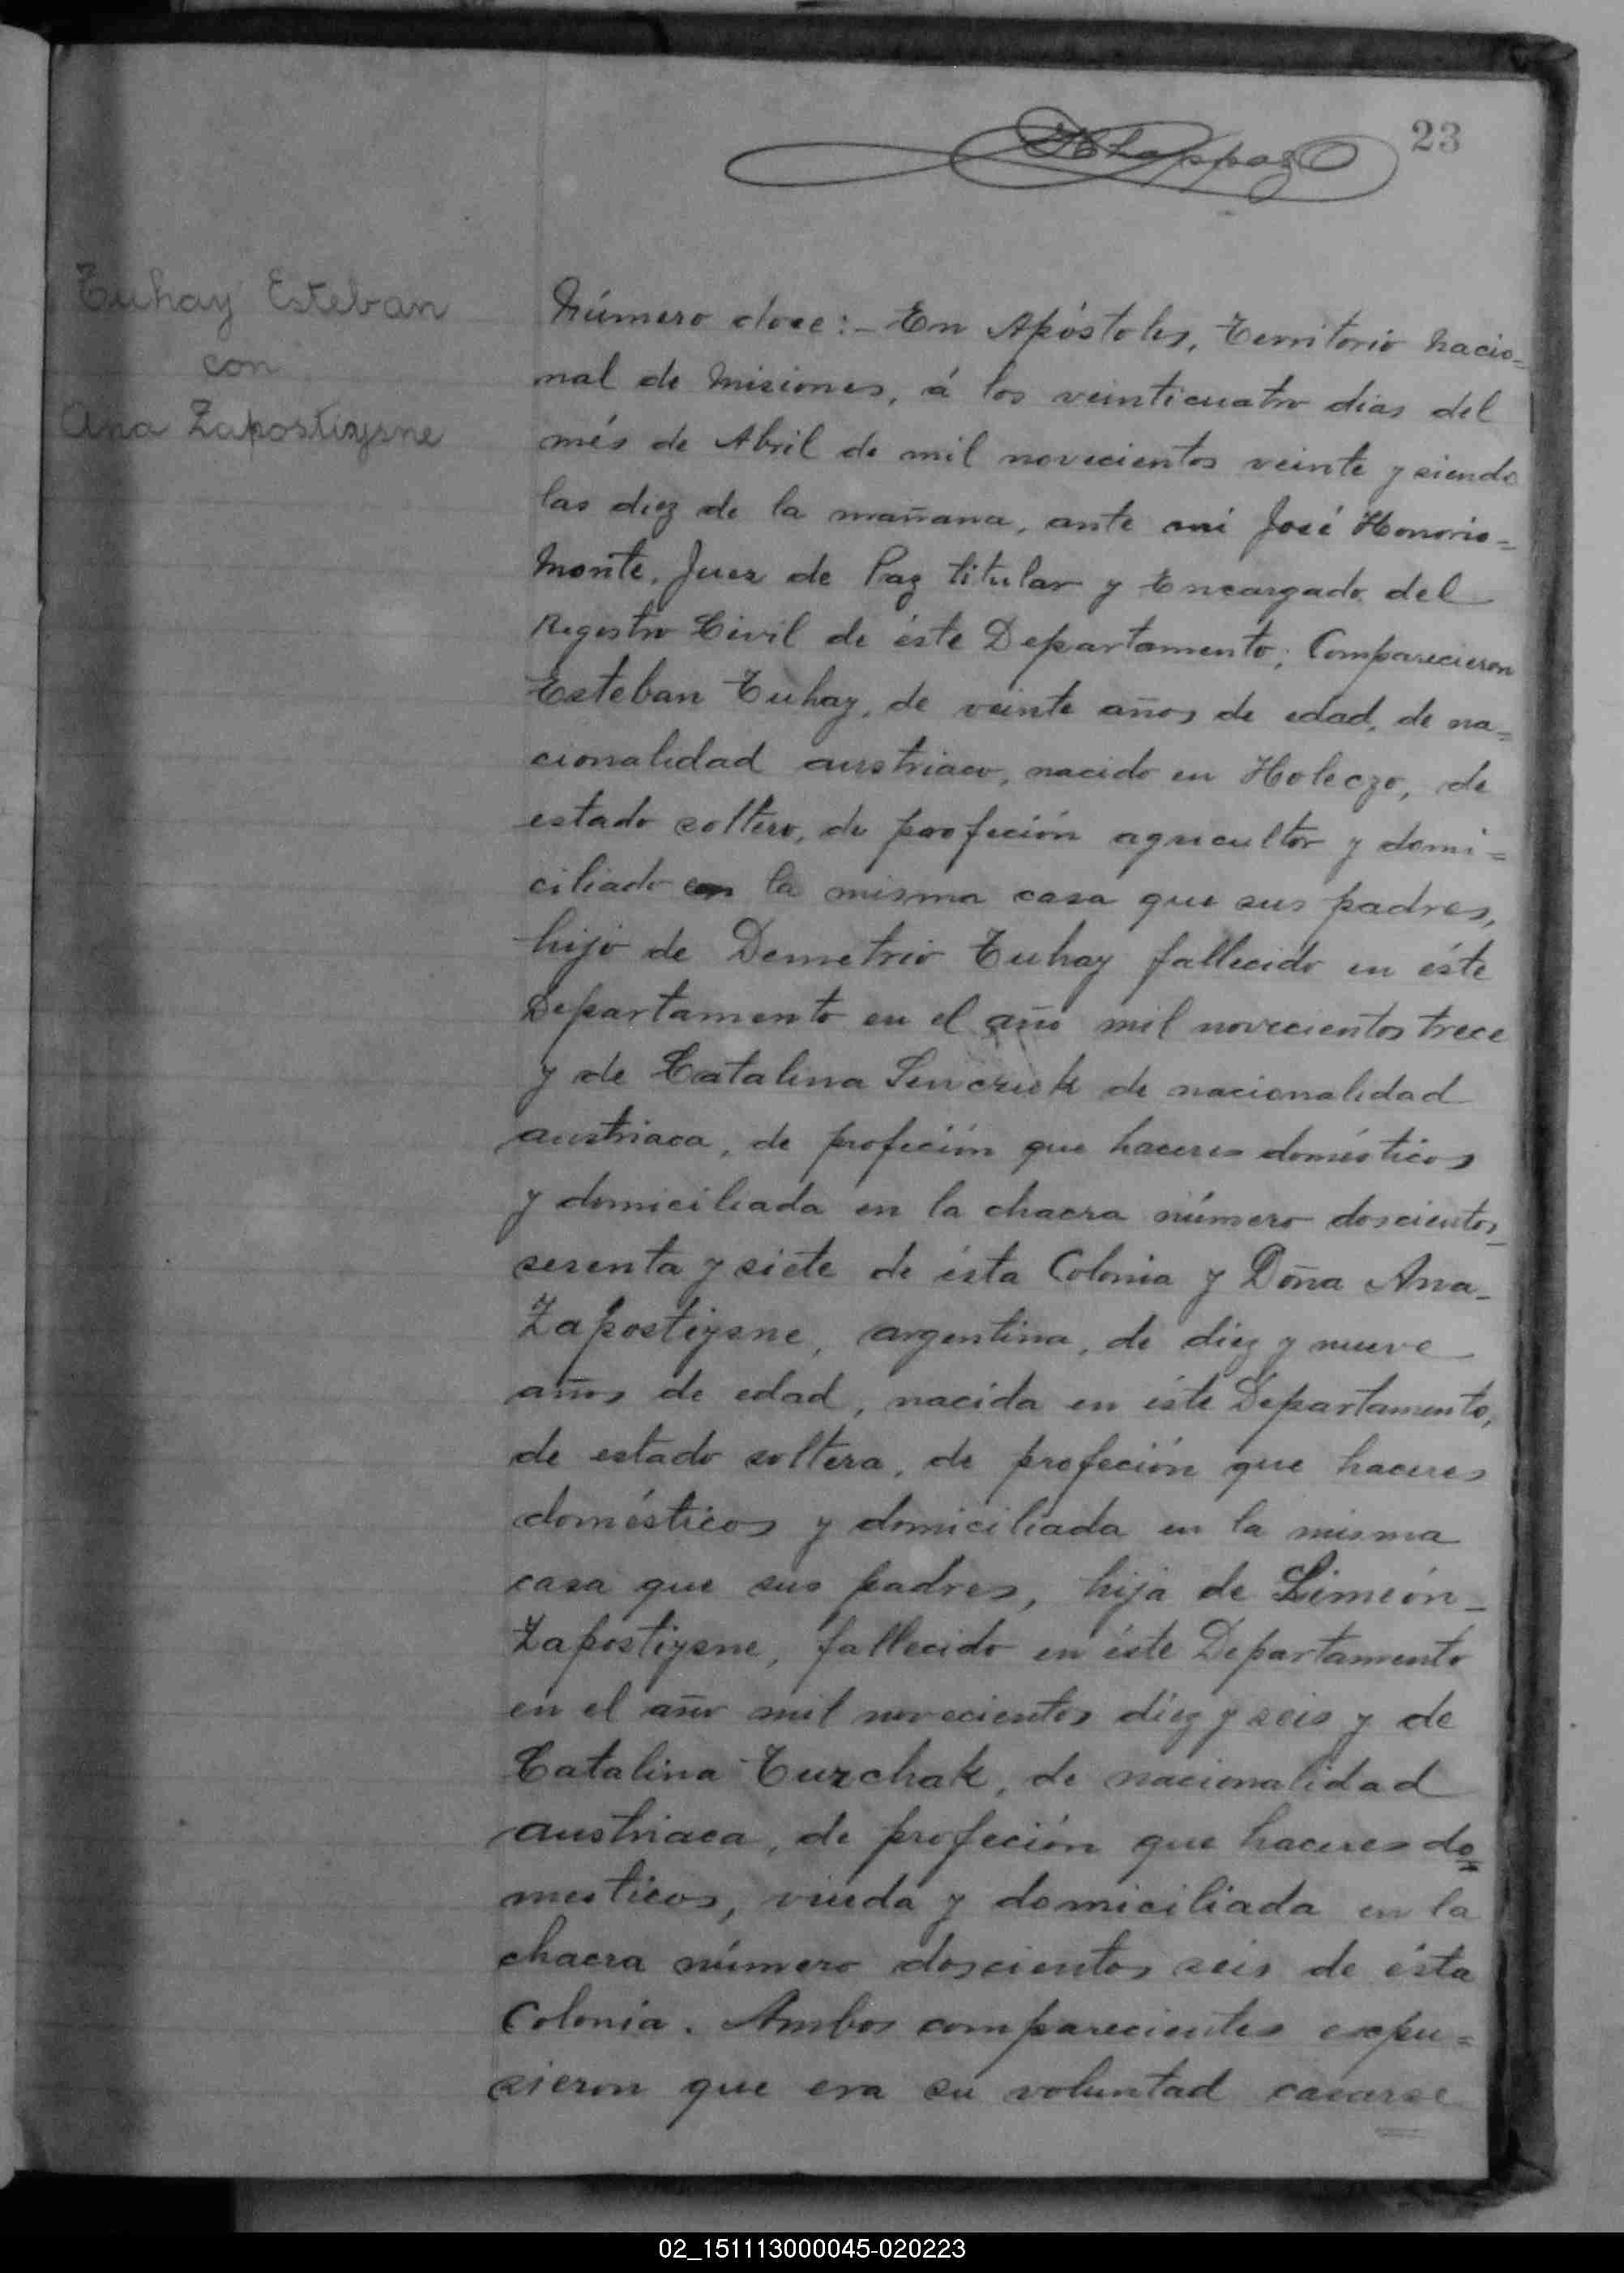 23
Tuhay Esteban
con
Ana Zapostiysne
Número doce:- En Apóstoles, Territorio Nacio=
nal de Misiones, á los veinticuatro dias del
més de Abril de mil novecientos veinte y siendo
las diez de la mañana, ante mi José Honorio=
Monte, Juez de Paz titular y Encargado del
Registro Civil de éste Departamento; Comparecieron
Esteban Tuhay, de veinte años de edad, de na=
cionalidad austriaco, nacido en Holeczo, de
estado soltero, de profeción agricultor y domi=
ciliado en la misma casa que sus padres,
hijo de Demetrio Tuhay fallecido en éste
Departamento en el año mil novecientos trece
y de Catalina Senczuk de nacionalidad
austriaca, de profeción que haceres domésticos
y domiciliada en la chacra número doscientos
sesenta y siete de ésta Colonia y Doña Ana-
Zapostiysne, argentina, de diez y nueve
años de edad, nacida en éste Departamento,
de estado soltera, de profeción que haceres
domésticos y domiciliada en la misma
casa que sus padres, hija de Simeón-
Zapostiysne, fallecido en éste Departamento
en el año mil novecientos diez y seis y de
Catalina Turchak, de nacionalidad
austriaca, de profeción que haceres do=
mesticos, viuda y domiciliada en la
chacra número doscientos seis de ésta
Colonia. Ambos comparecientes expu=
sieron que era su voluntad casarse
02_151113000045-020223